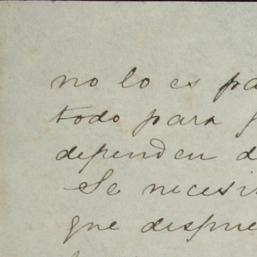 no lo es pa
todo para g
dependen d
Se necesi
que despue